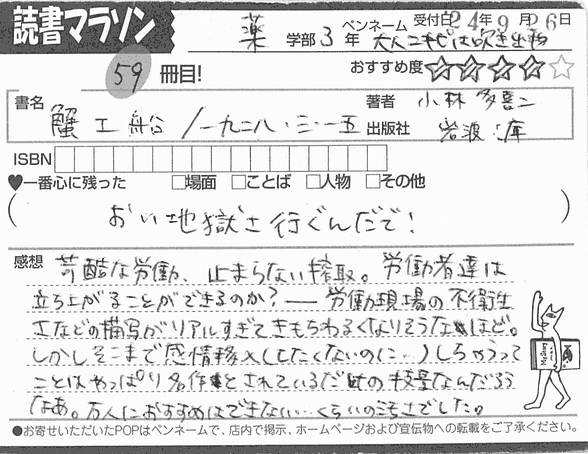 読書マラソン
薬 学部 3 年 ペンネーム 大人ニキビは吹き出物 受付日 24年 9月 26日
59 冊目! おすすめ度 ★★★★☆
書名 蟹工船/一九二八・三・一五 著者 小林多喜二
出版社 岩波文庫
ISBN
♥一番心に残った □場面 □ことば □人物 □その他
( おい地獄さ行ぐんだで! )
感想 苛酷な労働、止まらない搾取。労働者達は
立ち上がることができるのか?―労働現場の不衛生
さなどの描写がリアルすぎてきもちわるくなりそうなほど。
しかしそこまで感情移入(したくないのに…)しちゃうって
ことはやっぱり名作とされているだけの技量なんだろう
なあ。万人におすすめはできない…くらいのエグさでした。
●お寄せいただいたPOPはペンネームで、店内で掲示、ホームページおよび宣伝物への転載をご了承ください。